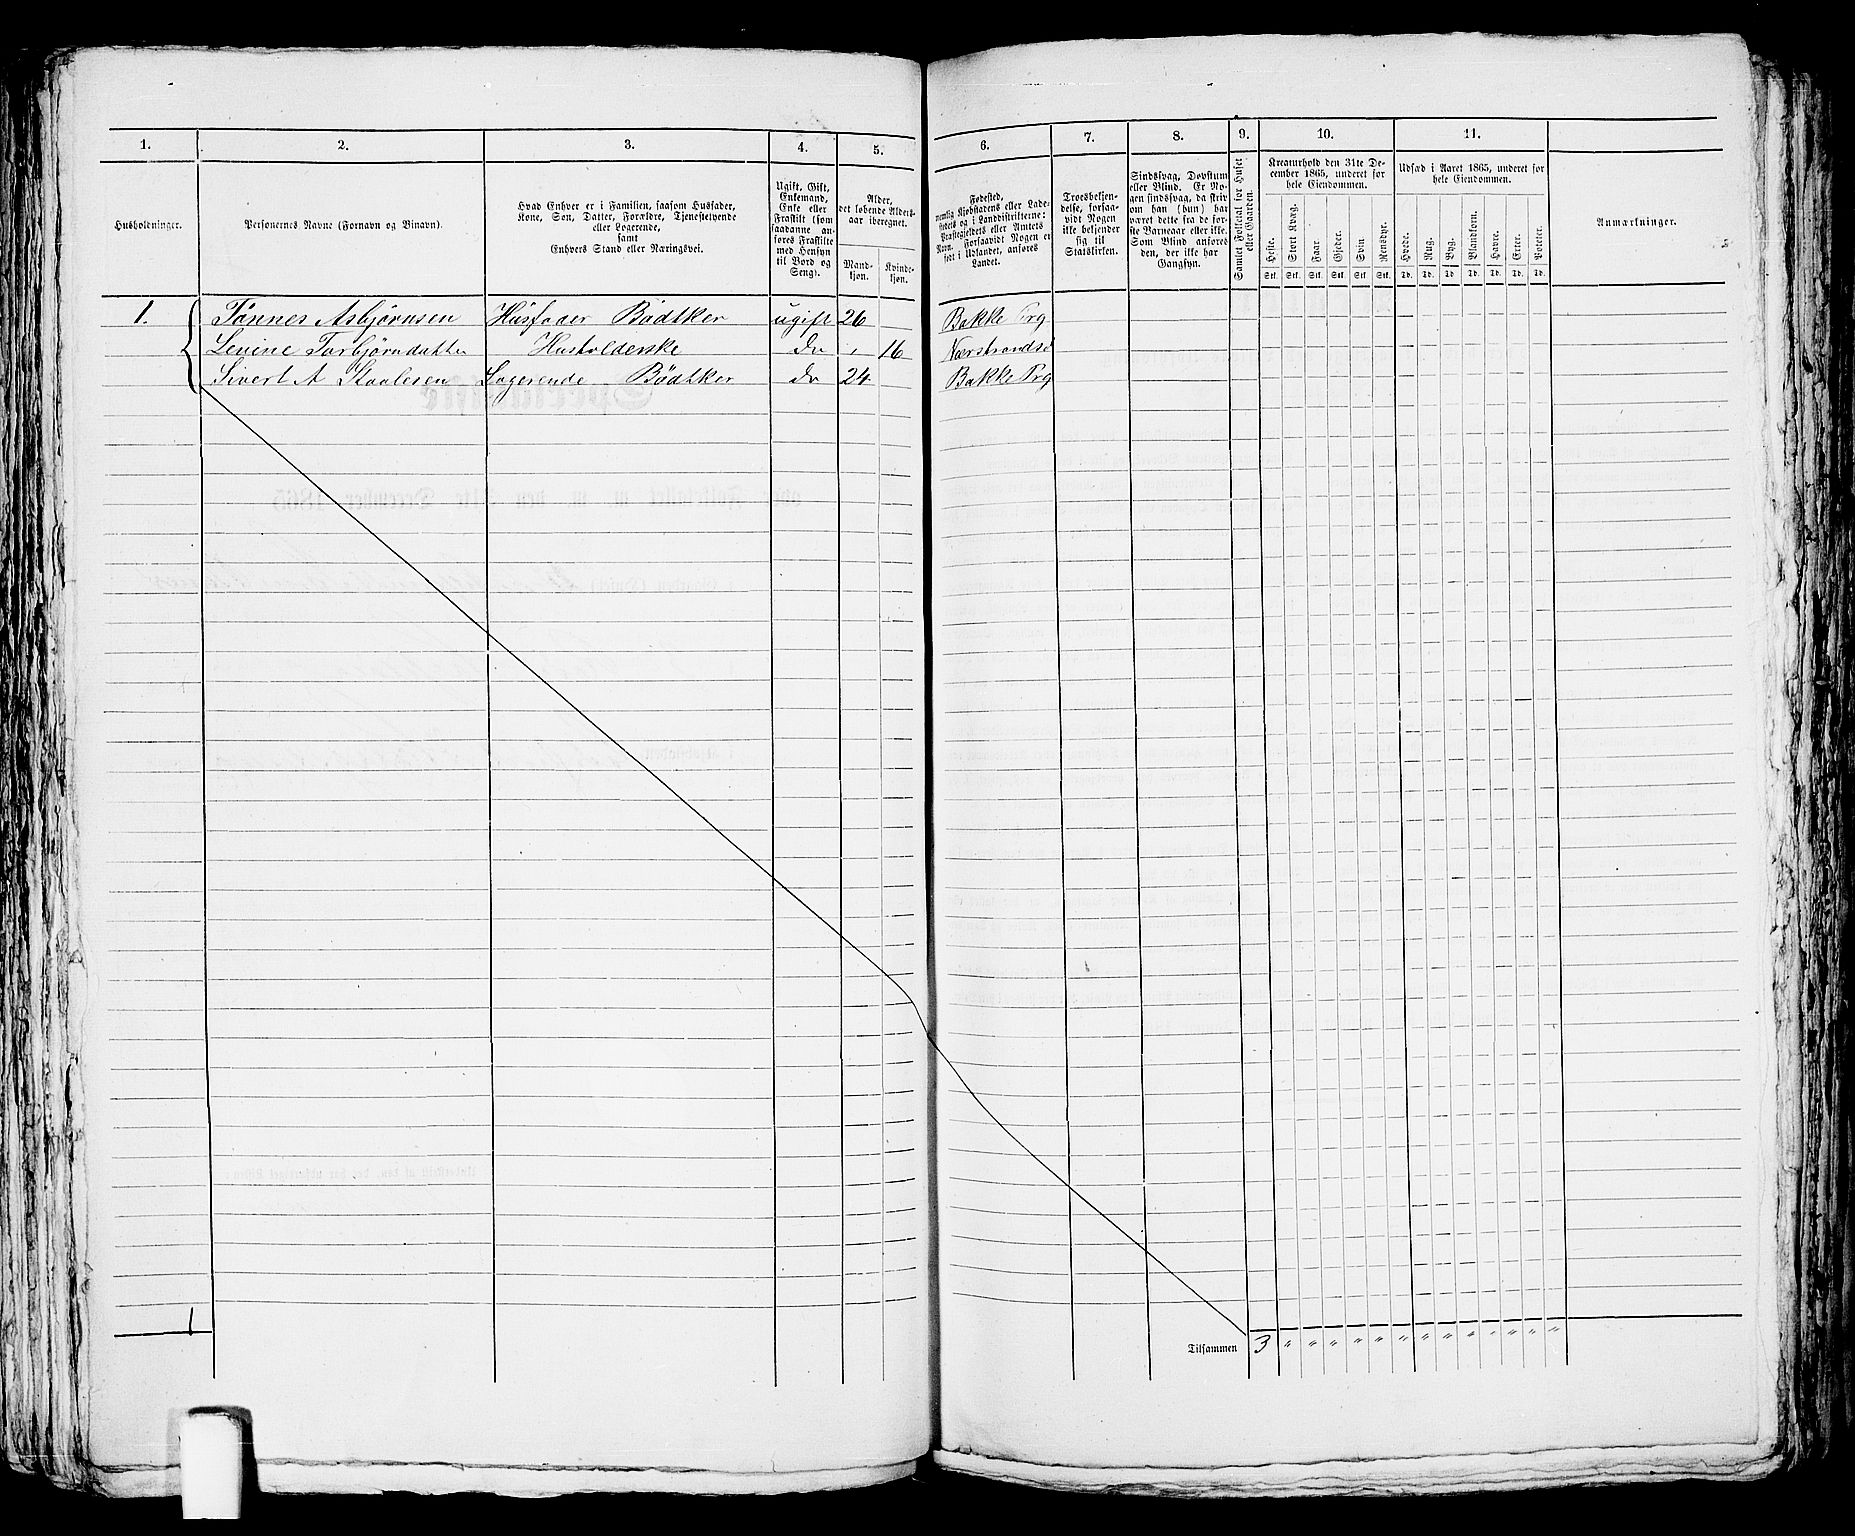 1. 2. 3. 4. 5. 6. 7. 8. 9. 10. 11.
Husholdninger.
Personernes Navne (Fornavn og Binavn).
Hvad Enhver er i Familien, saasom Husfader,
Kone, Søn, Datter, Forældre, Tjenestetyende
eller Logerende,
samt
Enhvers Stand eller Næringsvei.
Ugift, Gift,
Enkemand,
Enke eller
Fraskilt (som
saadanne an-
føres Fraskilte
med Hensyn
til Bord og
Seng).
Alder,
det løbende Alders-
aar iberegnet.
Mand-
kjøn.
Kvinde-
kjøn.
Fødested,
nemlig Kjøbstadens eller Lade-
stedets og i Landdistrikterne:
Præstegjeldets eller Amtets
Navn. Forsaavidt Nogen er
født i Udlandet, anføres
Landet.
Troesbekjen-
delse, forsaa-
vidt Nogen
ikke bekjender
sig til
Statskirken.
Sindssvag, Døvstum
eller Blind. Er No-
gen sindssvag, da skriv
om han (hun) har
været dette fra de før-
ste Barneaar eller ikke.
Som Blind anføres
den, der ikke har
Gangsyn.
Samlet Folketal for Huset
eller Gaarden.
Kreaturhold den 31te De-
cember 1865, underet for
hele Eiendommen.
Heste. Stort Kvæg. Faar. Gjeder. Svin. Rensdyr.
Stk. Stk. Stk. Stk. Stk. Stk.
Udsæd i Aaret 1865, underet for
hele Eiendommen.
Hvede. Rug. Byg. Blandkorn. Havre. Erter. Poteter.
Td. Td. Td Td. Td. Td. Td.
Anmærkninger.
1. Tønnes Asbjørnsen Husfader Bødtker ugift 26 Bakke Prg
Levine Torbjørndatter Husholderske do 16 Nærstrandsd
Sivert A Staalesen Logerende Bødtker do 24. Bakke Prg
1
Tilsammen 3 " " " " " " " " " " " " "